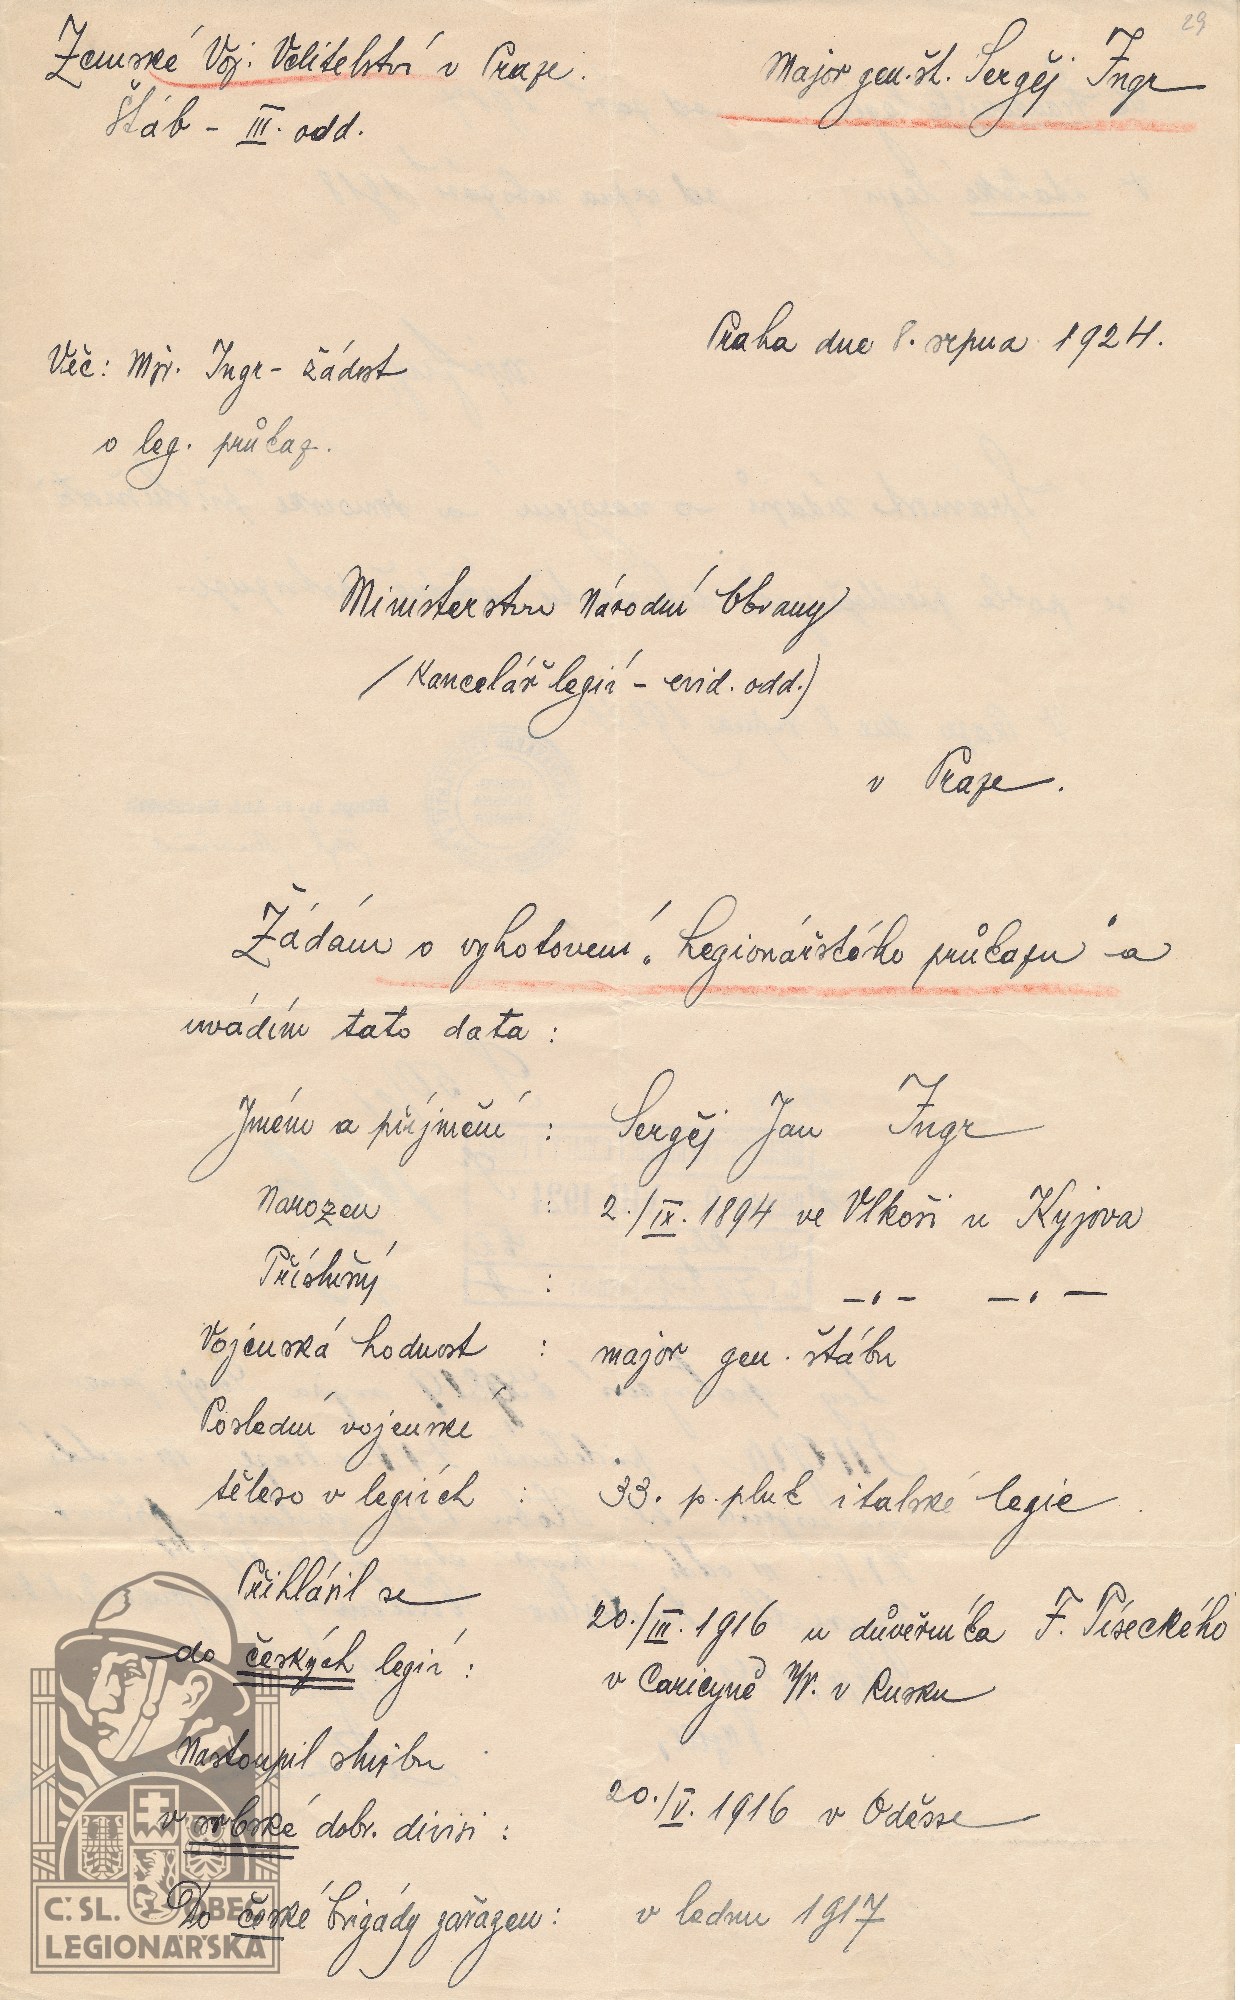 29
Zemské Voj. Velitelství v Praze.
Štáb - III. odd.
Major gen. št. Sergěj Ingr
Praha dne 8. srpna 1924.
Věc: Mjr. Ingr - žádost
o leg. průkaz.
Ministerstvu Národní Obrany
/Kancelář legií - evid. odd.)
v Praze.
Žádám o vyhotovení „Legionářského průkazu" a
uvádím tato data:
Jméno a příjmení : Sergěj Jan Ingr
Narozen : 2./IX. 1894 ve Vlkoši u Kyjova
Příslušný : -"- -"-
Vojenská hodnost : major gen. štábu
Poslední vojenské
těleso v legiích : 33. p. pluk italské legie
Přihlásil se
do českých legií : 20./III. 1916 u důvěrníka F. Píseckého
v Caricyně n/V. v Rusku
Nastoupil službu
v srbské dobr. divisi : 20./V. 1916 v Oděsse
Do české brigády zařazen : v lednu 1917
Č. SL. OBEC
LEGIONÁŘSKÁ